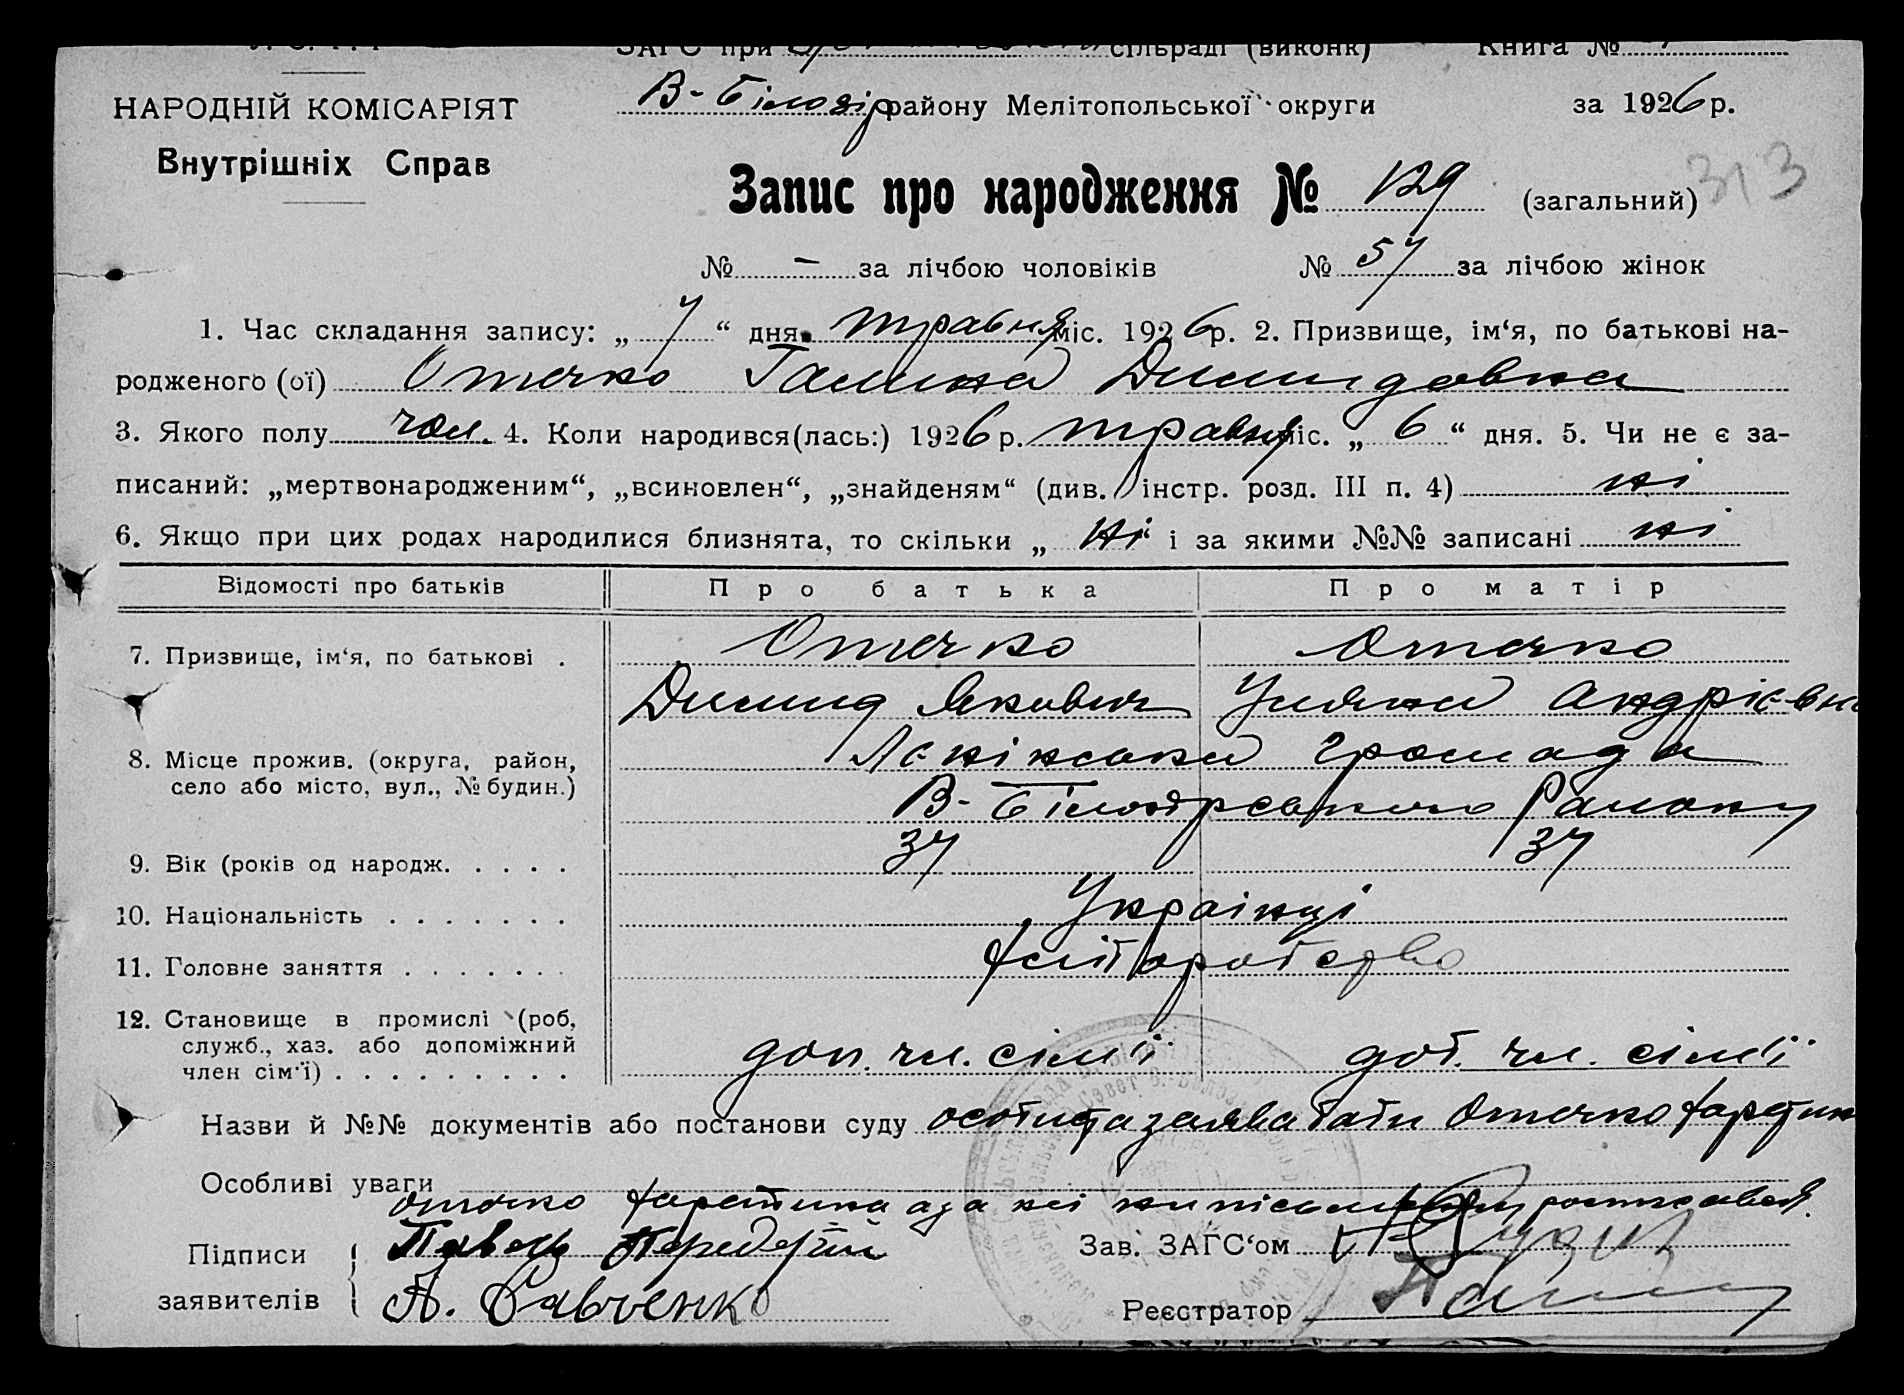 ЗАГС при сільраді (виконк) Книга №
НАРОДНІЙ КОМІСАРІЯТ
В-Білозір району Мелітопольської округи за 1926 р.
Внутрішніх Справ
Запис про народження № 129 (загальний) 313
№ - за лічбою чоловіків № 57 за лічбою жінок
1. Час складання запису: „ 7 “ дня травня міс. 1926 р. 2. Призвище, ім‘я, по батькові на-
родженого (ої) Отечко Галина Димидовна
3. Якого полу чол. 4. Коли народився(лась:) 1926 р. травня міс. „ 6 “ дня. 5. Чи не є за-
писаний: „мертвонародженим“, „всиновлен“, „знайденям“ (див. інстр. розд. III п. 4) ні
6. Якщо при цих родах народилися близнята, то скільки „ ні “ і за якими №№ записані ні
Відомості про батьків Про батька Про матір
7. Призвище, ім‘я, по батькові . Отечко Отечко
Димид Якович Уляна Андріевна
8. Місце прожив. (округа, район, громада
село або місто, вул., № будин.) В-Білозірського Району
9. Вік (років од народж. . . . . 37 37
10. Національність . . . . . . . Українці
11. Головне заняття . . . . . . . хліборобство
12. Становище в промислі (роб,
служб., хаз. або допоміжний доп. чл. сім'ї доп. чл. сім'ї
член сім‘ї) . . . . . . . . .
Назви й №№ документів або постанови суду заява Отечко
Особливі уваги
Отечко а за
Підписи Павель Зав. ЗАГС‘ом
заявителів А. Савченко Реєстратор